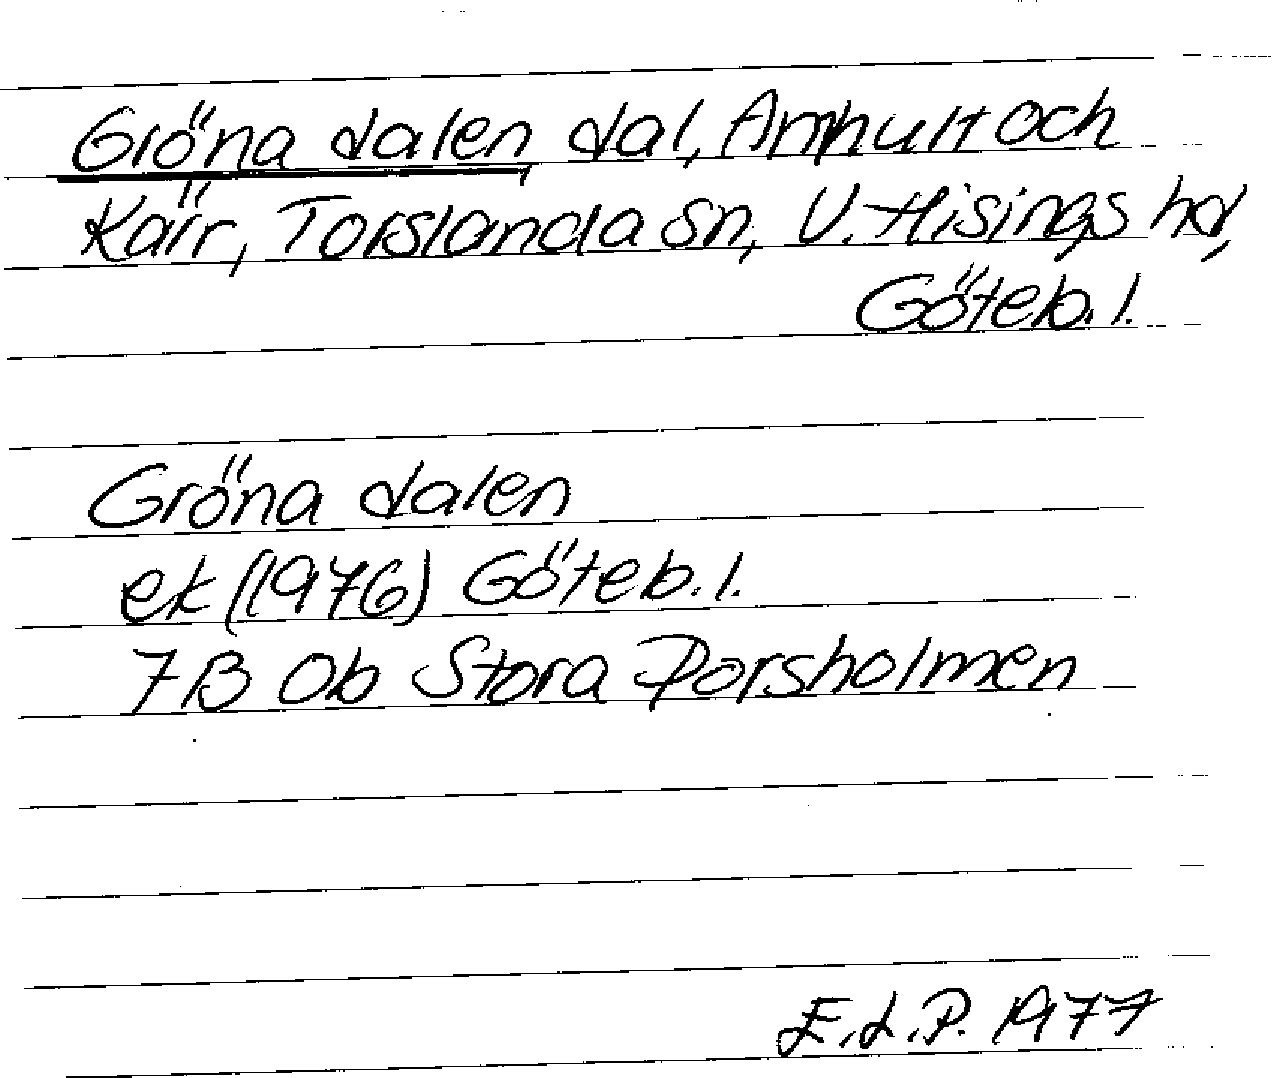 Gröna dalen, dal, Amhult och
Kärr, Torslanda sn, V. Hisings hd,
Göteb. l.
Gröna dalen
ek (1976) Göteb. l.
7B 0b Stora Porsholmen
E.L.P. 1977